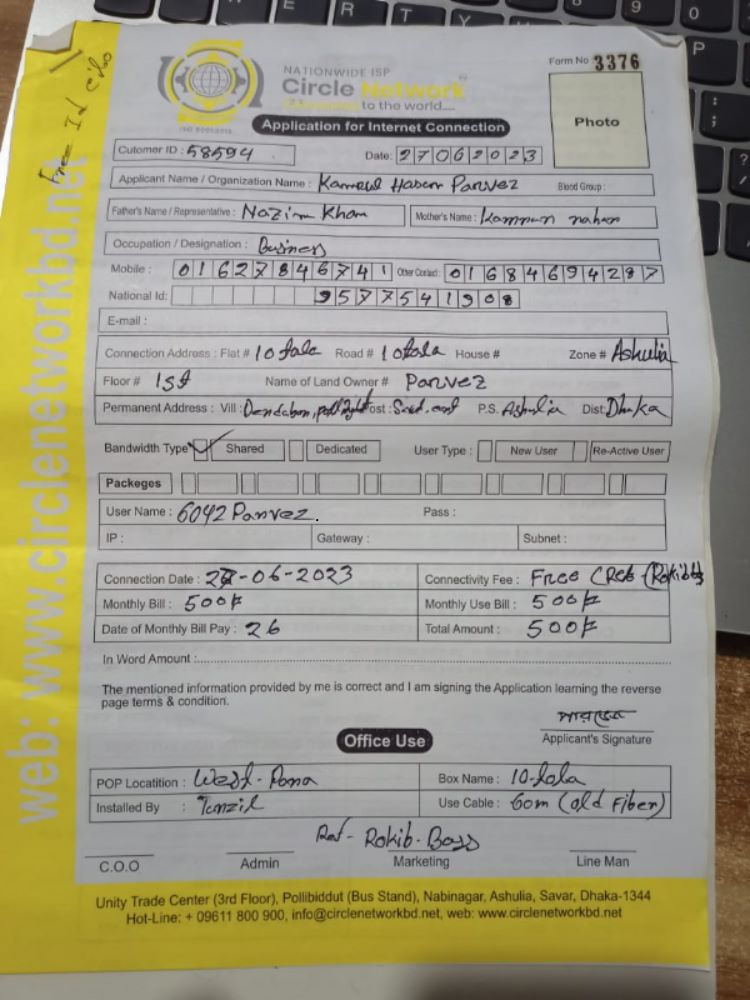 Free Id
NATIONWIDE ISP
Circle Network
Connection to the world....
ISO 9001:2015
Form No 3376
Application for Internet Connection
Photo
Cutomer ID : 58594
Date: 27062023
Applicant Name / Organization Name : Kamrul Hasan Parvez Blood Group :
Father's Name / Representative : Nazim Khan
Mother's Name : Kamrun nahar
Occupation / Designation : Business
Mobile : 01627846741 Other Contact : 01684694287
National Id: 9577541908
E-mail :
Connection Address : Flat # 10 tala Road # 10 tala House # Zone # Ashulia
Floor # 1st Name of Land Owner # Parvez
Permanent Address : Vill : Dendabor, Post : P.S. Ashulia Dist: Dhaka
Bandwidth Type Shared Dedicated User Type : New User Re-Active User
Packeges
User Name : 6042 Parvez. Pass :
IP : Gateway : Subnet :
Connection Date : 27-06-2023 Connectivity Fee : Free
Monthly Bill : 500৳ Monthly Use Bill : 500৳
Date of Monthly Bill Pay : 26 Total Amount : 500৳
In Word Amount :
The mentioned information provided by me is correct and I am signing the Application learning the reverse
page terms & condition.
পারভেজ
Applicant's Signature
Office Use
POP Locatition : West-Para Box Name : 10-tala
Installed By : Tanzil Use Cable : 60m (old Fiber)
Ref- Rokib-Boss
C.O.O Admin Marketing Line Man
Unity Trade Center (3rd Floor), Pollibiddut (Bus Stand), Nabinagar, Ashulia, Savar, Dhaka-1344
Hot-Line: + 09611 800 900, info@circlenetworkbd.net, web: www.circlenetworkbd.net
web: www.circlenetworkbd.net